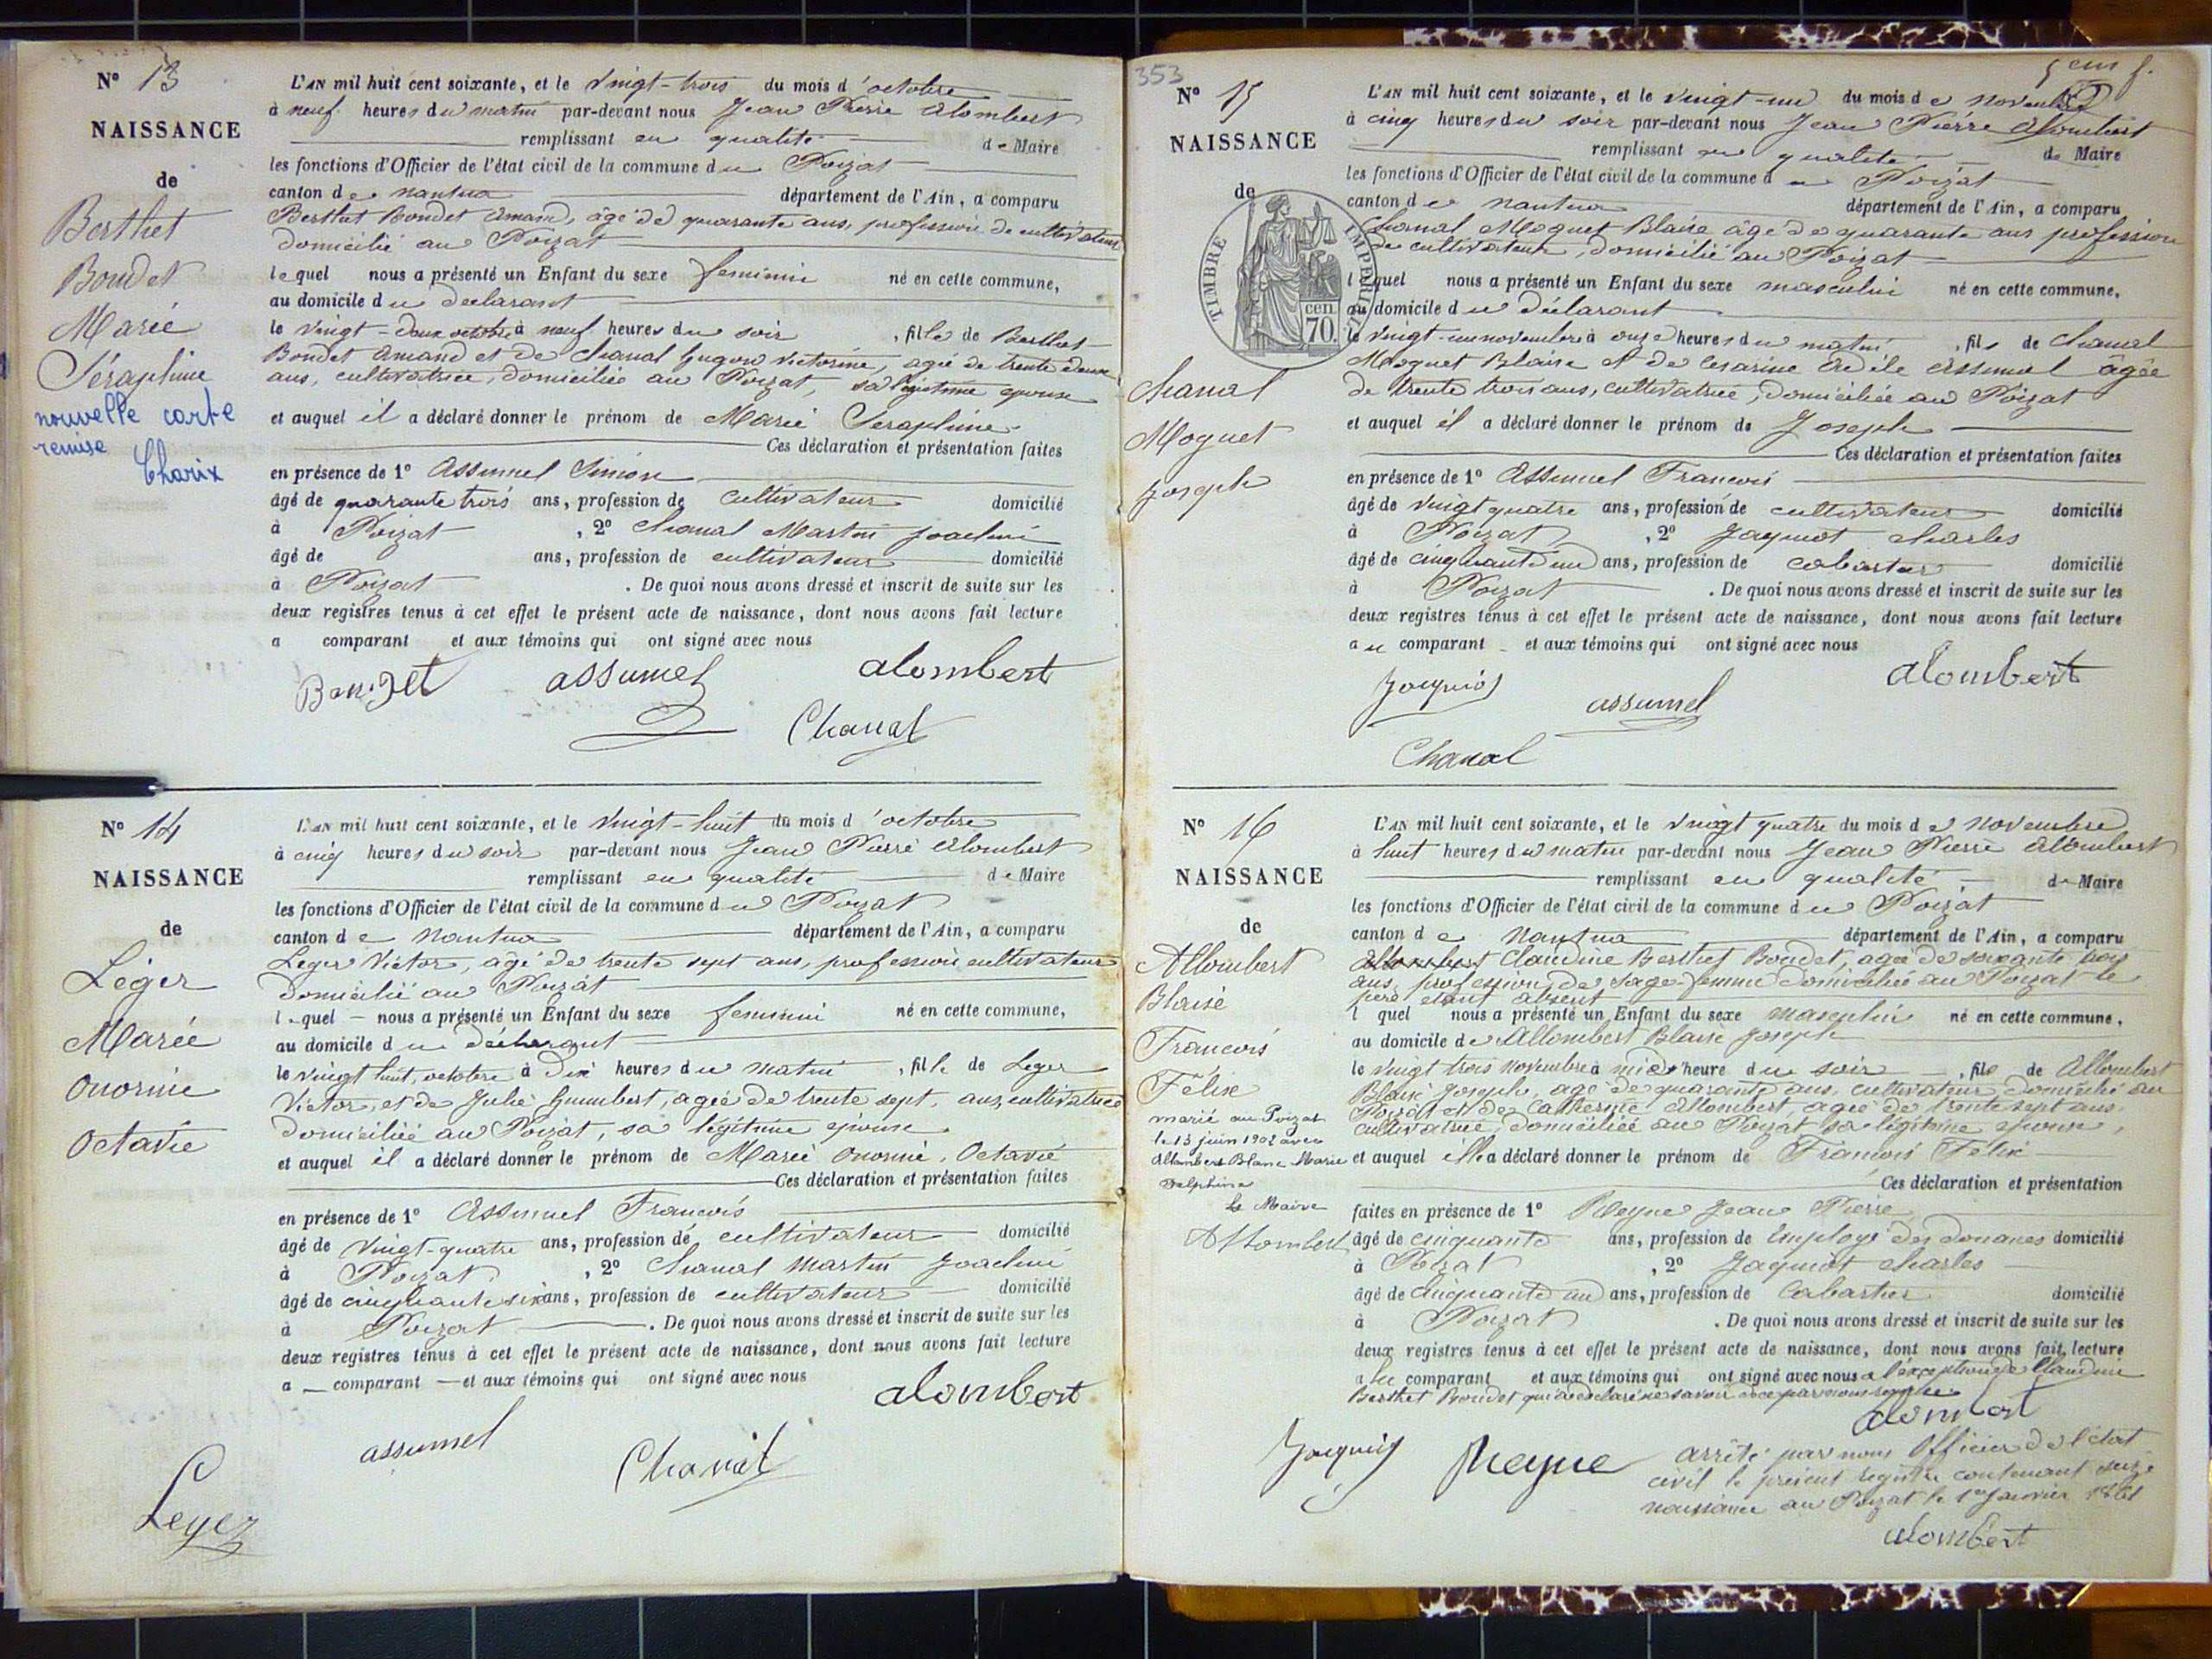 N° 13
NAISSANCE
de
Berthet
Bondet
Marie
Séraphine
nouvelle carte
remise
Charix
L'AN mil huit cent soixante, et le vingt-trois du mois d'octobre
à neuf heures du matin par-devant nous Jean Pierre Alombert
remplissant en qualité de Maire
les fonctions d'Officier de l'état civil de la commune du Poizat
canton de nantua département de l'Ain, a comparu
Berthet Bondet Amand, âgé de quarante ans, profession de cultivateur
domicilié au Poizat
lequel nous a présenté un Enfant du sexe feminin né en cette commune,
au domicile du declarant
le vingt-deux octobre à neuf heures du soir, fille de Berthet
Bondet Amand et de Chanal Gugon Victorine, agée de trente deux
ans, cultivatrice, domiciliée au Poizat, sa légitime epouse
et auquel il a déclaré donner le prénom de Marie Seraphine
Ces déclaration et présentation faites
en présence de 1° Assumel Simion
âgé de quarante trois ans, profession de cultivateur domicilié
à Poizat, 2° Chanal Martin Joachim
âgé de ans, profession de cultivateur domicilié
à Poizat. De quoi nous avons dressé et inscrit de suite sur les
deux registres tenus à cet effet le présent acte de naissance, dont nous avons fait lecture
a comparant et aux témoins qui ont signé avec nous
Bondet assumel alombert
Chanal
N° 14
NAISSANCE
de
Léger
Marie
Onorine
Octavie
L'AN mil huit cent soixante, et le vingt-huit du mois d'octobre
à cinq heures du soir par-devant nous Jean Pierre Alombert
remplissant en qualité de Maire
les fonctions d'Officier de l'état civil de la commune du Poizat
canton de Nantua département de l'Ain, a comparu
Leger Victor, âgé de trente sept ans, profession cultivateur
domicilié au Poizat
lequel nous a présenté un Enfant du sexe feminin né en cette commune,
au domicile du déclarant
le vingt huit, octobre à dix heures du matin, fille de Leger
Victor, et de Julie Gumbert, agée de trente sept, ans, cultivatrice
domiciliée au Poizat, sa légitime epouse
et auquel il a déclaré donner le prénom de Marie Onorine, Octavie
Ces déclaration et présentation faites
en présence de 1° Assumel Francois
âgé de vingt-quatre ans, profession de cultivateur domicilié
à Poizat, 2° Chanal Martin Joachim
âgé de cinquante six ans, profession de cultivateur domicilié
à Poizat. De quoi nous avons dressé et inscrit de suite sur les
deux registres tenus à cet effet le présent acte de naissance, dont nous avons fait lecture
a comparant et aux témoins qui ont signé avec nous
alombert
assumel Chanal
Leger
353
N° 15
NAISSANCE
de
TIMBRE IMPERIAL
cen. 70.
Chanal
Moguet
Joseph
L'AN mil huit cent soixante, et le vingt-un du mois de novembre
à cinq heures du soir par-devant nous Jean Pierre Alombert
remplissant en qualité de Maire
les fonctions d'Officier de l'état civil de la commune du Poizat
canton de nantua département de l'Ain, a comparu
Chanal Moguet Blaise âgé de quarante ans profession
de cultivateur, domicilié au Poizat
lequel nous a présenté un Enfant du sexe masculin né en cette commune,
au domicile du déclarant
le vingt-un novembre à onze heures du matin, fils de Chanal
Moguet Blaise et de Cesarine Adèle Assumel âgée
de trente trois ans, cultivatrice, domiciliée au Poizat
et auquel il a déclaré donner le prénom de Joseph
Ces déclaration et présentation faites
en présence de 1° Assumel Francois
âgé de vingt quatre ans, profession de cultivateur domicilié
à Poizat, 2° Jaquiot charles
âgé de cinquante un ans, profession de cabartier domicilié
à Poizat. De quoi nous avons dressé et inscrit de suite sur les
deux registres tenus à cet effet le présent acte de naissance, dont nous avons fait lecture
au comparant et aux témoins qui ont signé avec nous
Jaquiot assumel alombert
Chanal
N° 16
NAISSANCE
de
Allombert
Blaise
Francois
Félix
marié au Poizat
le 13 juin 1902 avec
Allombert Blanc Marie
Delphine
Le Maire
Allombert
L'AN mil huit cent soixante, et le vingt quatre du mois de novembre
à huit heures du matin par-devant nous Jean Pierre Alombert
remplissant en qualité de Maire
les fonctions d'Officier de l'état civil de la commune du Poizat
canton de Nantua département de l'Ain, a comparu
Claudine Berthet Bondet, agée de soixante trois
ans, profession de sage-femme domiciliée au Poizat le
père étant absent
lquel nous a présenté un Enfant du sexe masculin né en cette commune,
au domicile de Allombert Blaise Joseph
le vingt trois novembre à midi heure du soir, fils de Allombert
Blaise Joseph, agé de quarante ans, cultivateur domicilié au
Poizat et de Catherine Allombert, agée de trente sept ans,
cultivatrice, domiciliée au Poizat sa légitime epouse,
et auquel elle a déclaré donner le prénom de Francois Félix
Ces déclaration et présentation
faites en présence de 1° Reyne Jean Pierre
âgé de cinquante ans, profession de Employé des douanes domicilié
à Poizat, 2° Jaquiot charles
âgé de cinquante un ans, profession de Cabartier domicilié
à Poizat. De quoi nous avons dressé et inscrit de suite sur les
deux registres tenus à cet effet le présent acte de naissance, dont nous avons fait lecture
a la comparant et aux témoins qui ont signé avec nous a l'exception de Claudine
Berthet Bondet qui a déclaré ne savoir
alombert
Jaquiot Reyne
arrêté par nous Officier de l'état
civil le présent registre contenant seize
naissance au Poizat le 1er Janvier 1861
alombert